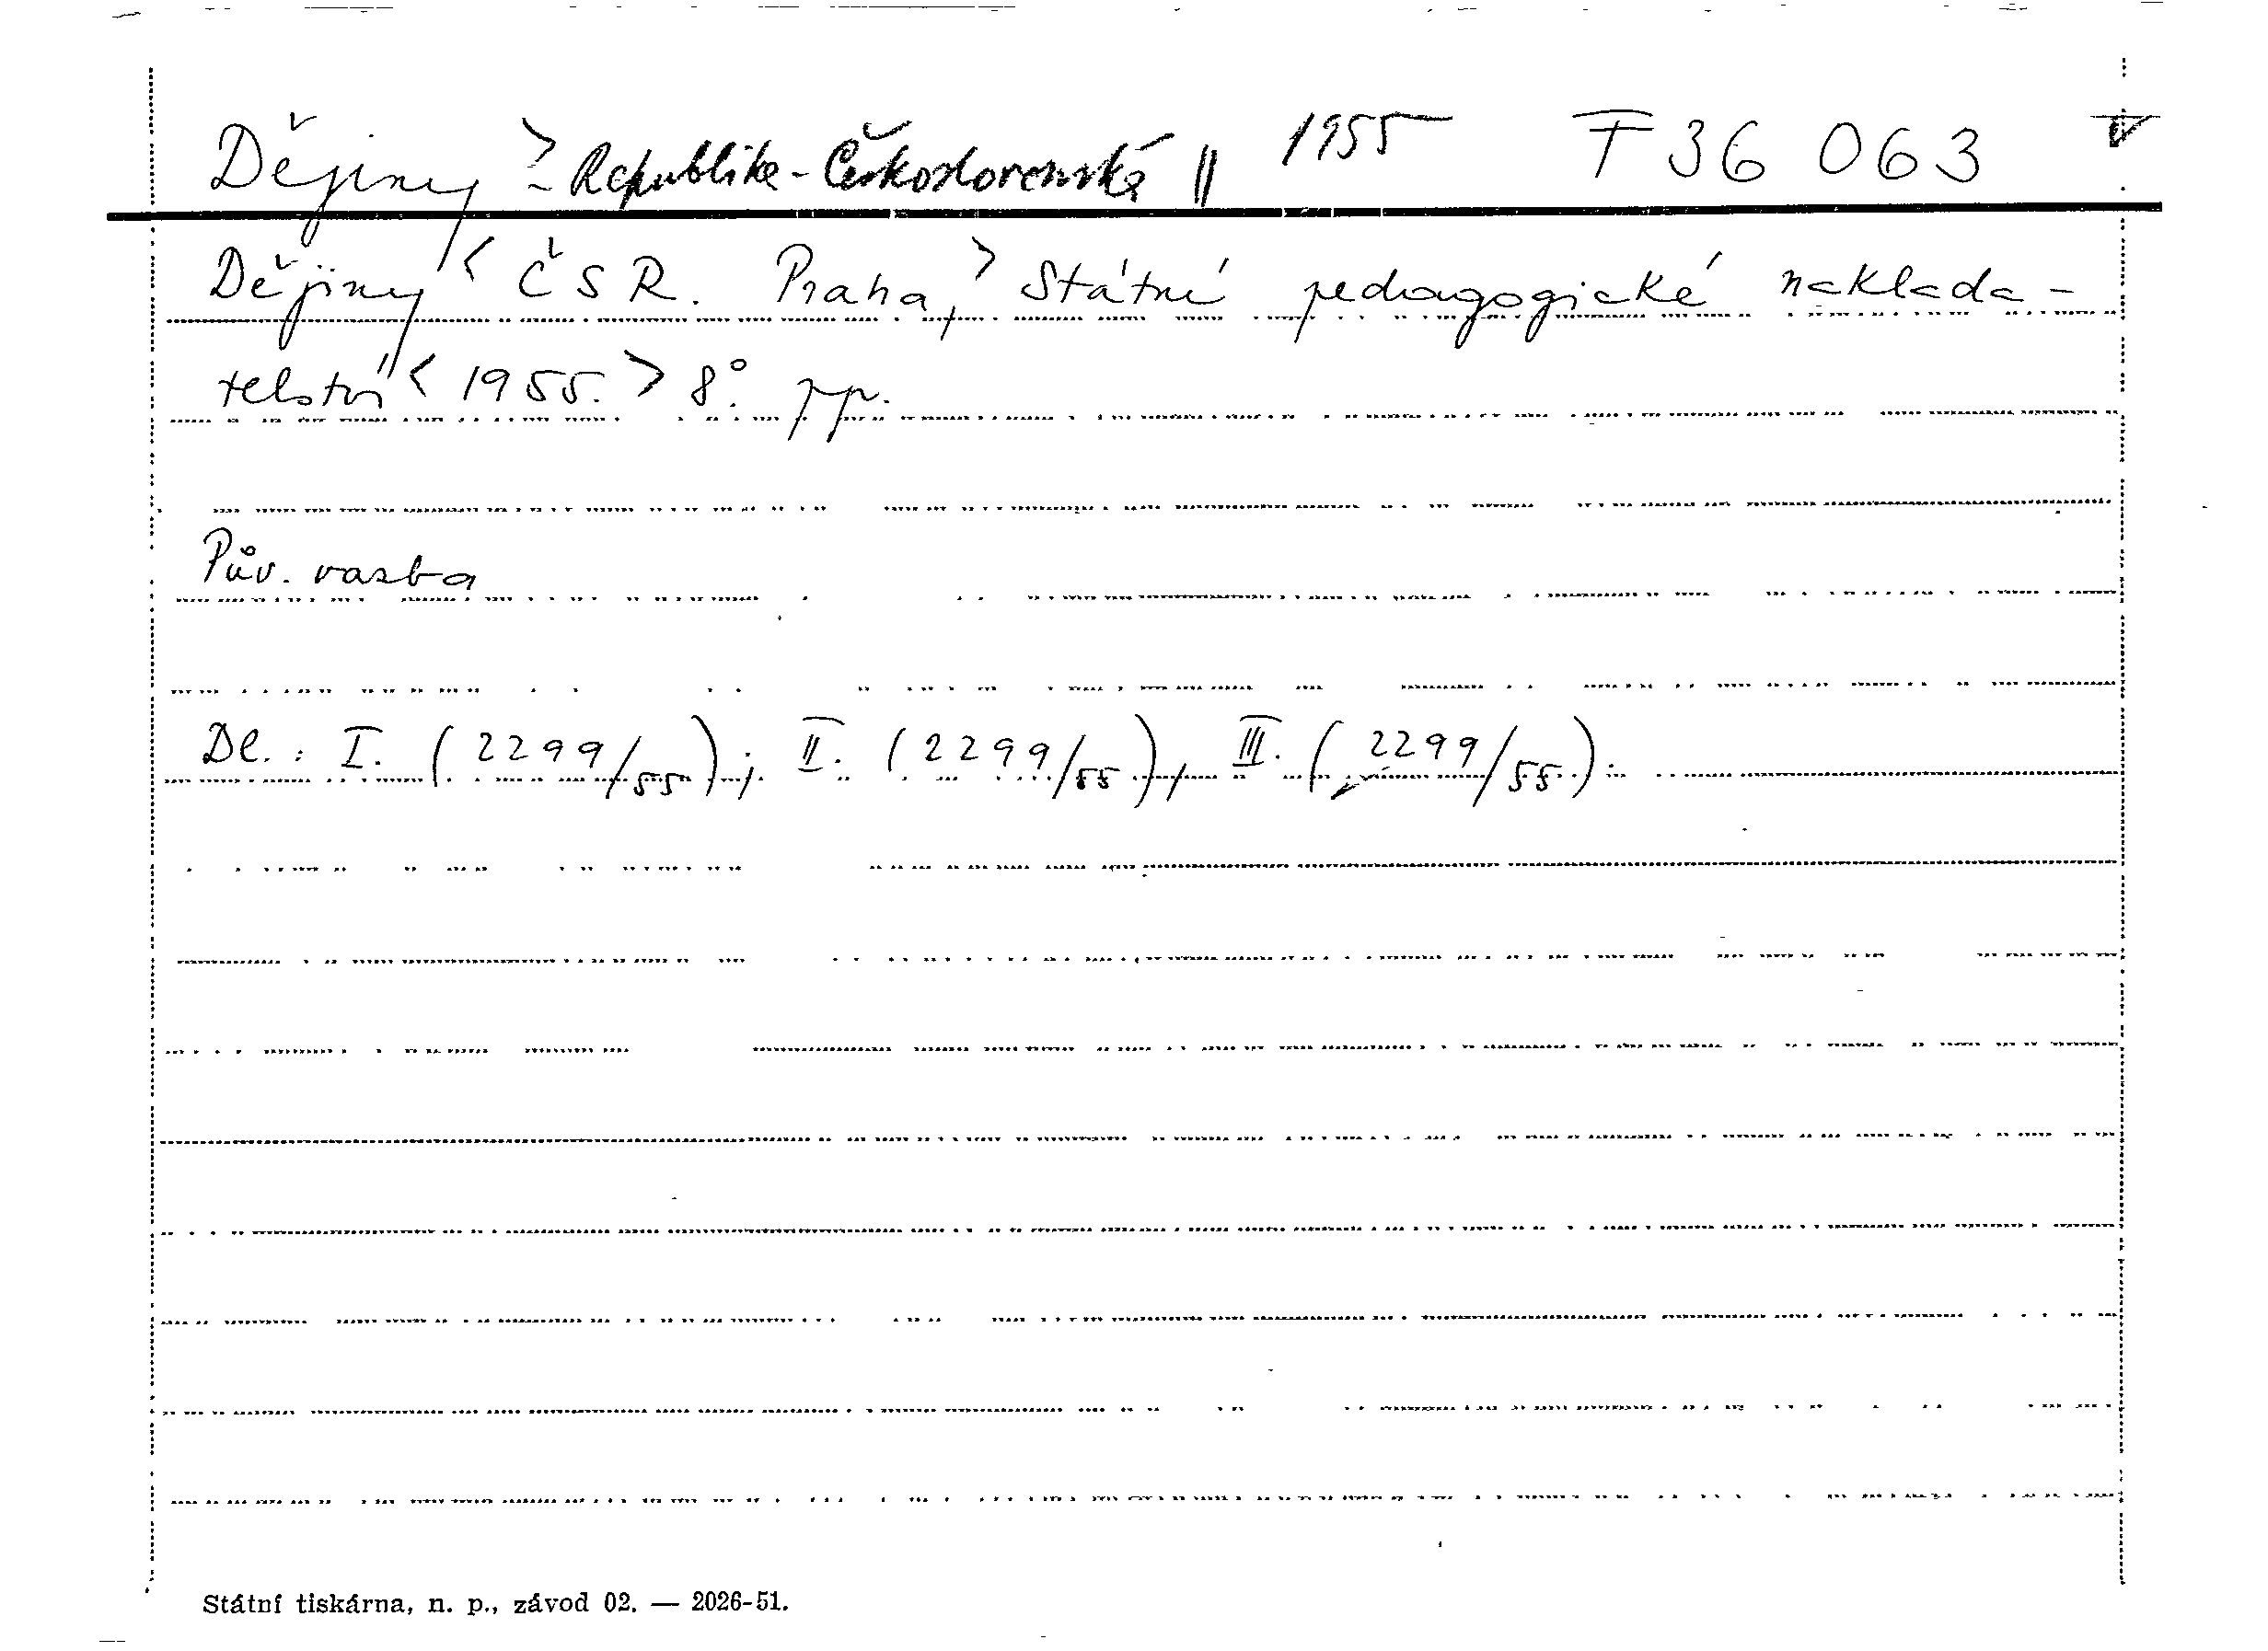 Dějiny > - Republika - Československá || 1955 F 36 063
Dějiny < ČSR. Praha, > Státní pedagogické naklada-
telství < 1955. > 8°. pp.
Pův. vazba
Dl. : I. (2299/55); II. (2299/55), III. (2299/55).
Státní tiskárna, n. p., závod 02. — 2026-51.